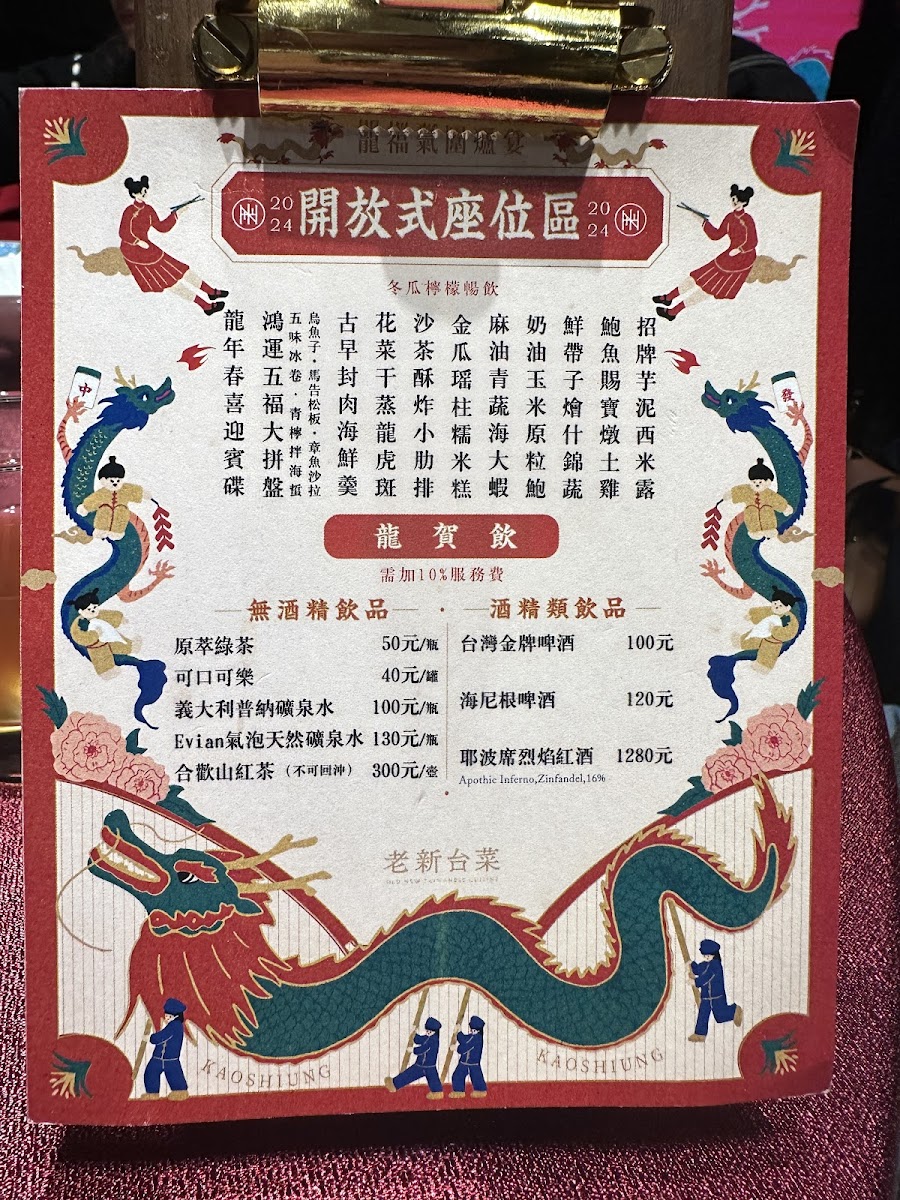 龍福氣圍爐宴
2024 開放式座位區 2024
冬瓜檸檬暢飲
龍年春喜迎賓碟
鴻運五福大拼盤
烏魚子・馬告松板・章魚沙拉
五味冰卷・青檸拌海蜇
古早封肉海鮮羹
花菜干蒸龍虎斑
沙茶酥炸小肋排
金瓜瑤柱糯米糕
麻油青蔬海大蝦
奶油玉米原粒鮑
鮮帶子燴什錦蔬
鮑魚賜寶燉土雞
招牌芋泥西米露
中
發
龍賀飲
需加10%服務費
無酒精飲品 · 酒精類飲品
原萃綠茶 50元/瓶
可口可樂 40元/罐
義大利普納礦泉水 100元/瓶
Evian氣泡天然礦泉水 130元/瓶
合歡山紅茶 (不可回沖) 300元/壺
台灣金牌啤酒 100元
海尼根啤酒 120元
耶波席烈焰紅酒 1280元
Apothic Inferno,Zinfandel,16%
老新台菜
KAOSHIUNG
KAOSHIUNG